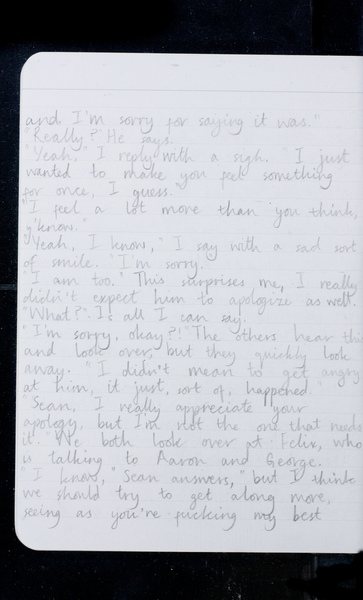 and I'm sorry for saying it was."
"Really?" He says.
"Yeah," I reply with a sigh. "I just
wanted to make you feel something
for once, I guess."
"I feel a lot more than you think,
y'know."
"Yeah, I know," I say with a sad sort
of smile. "I'm sorry."
"I am too." This surprises me, I really
didn't expect him to apologize as well.
"What?" Is all I can say.
"I'm sorry, okay?!" The others hear this
and look over, but they quickly look
away. "I didn't mean to get angry
at him, it just, sort of, happened."
"Sean, I really appreciate your
apology, but I'm not the one that needs
it." We both look over at Felix, who
is talking to Aaron and George.
"I know," Sean answers, "but I think
we should try to get along more,
seeing as you're fucking my best